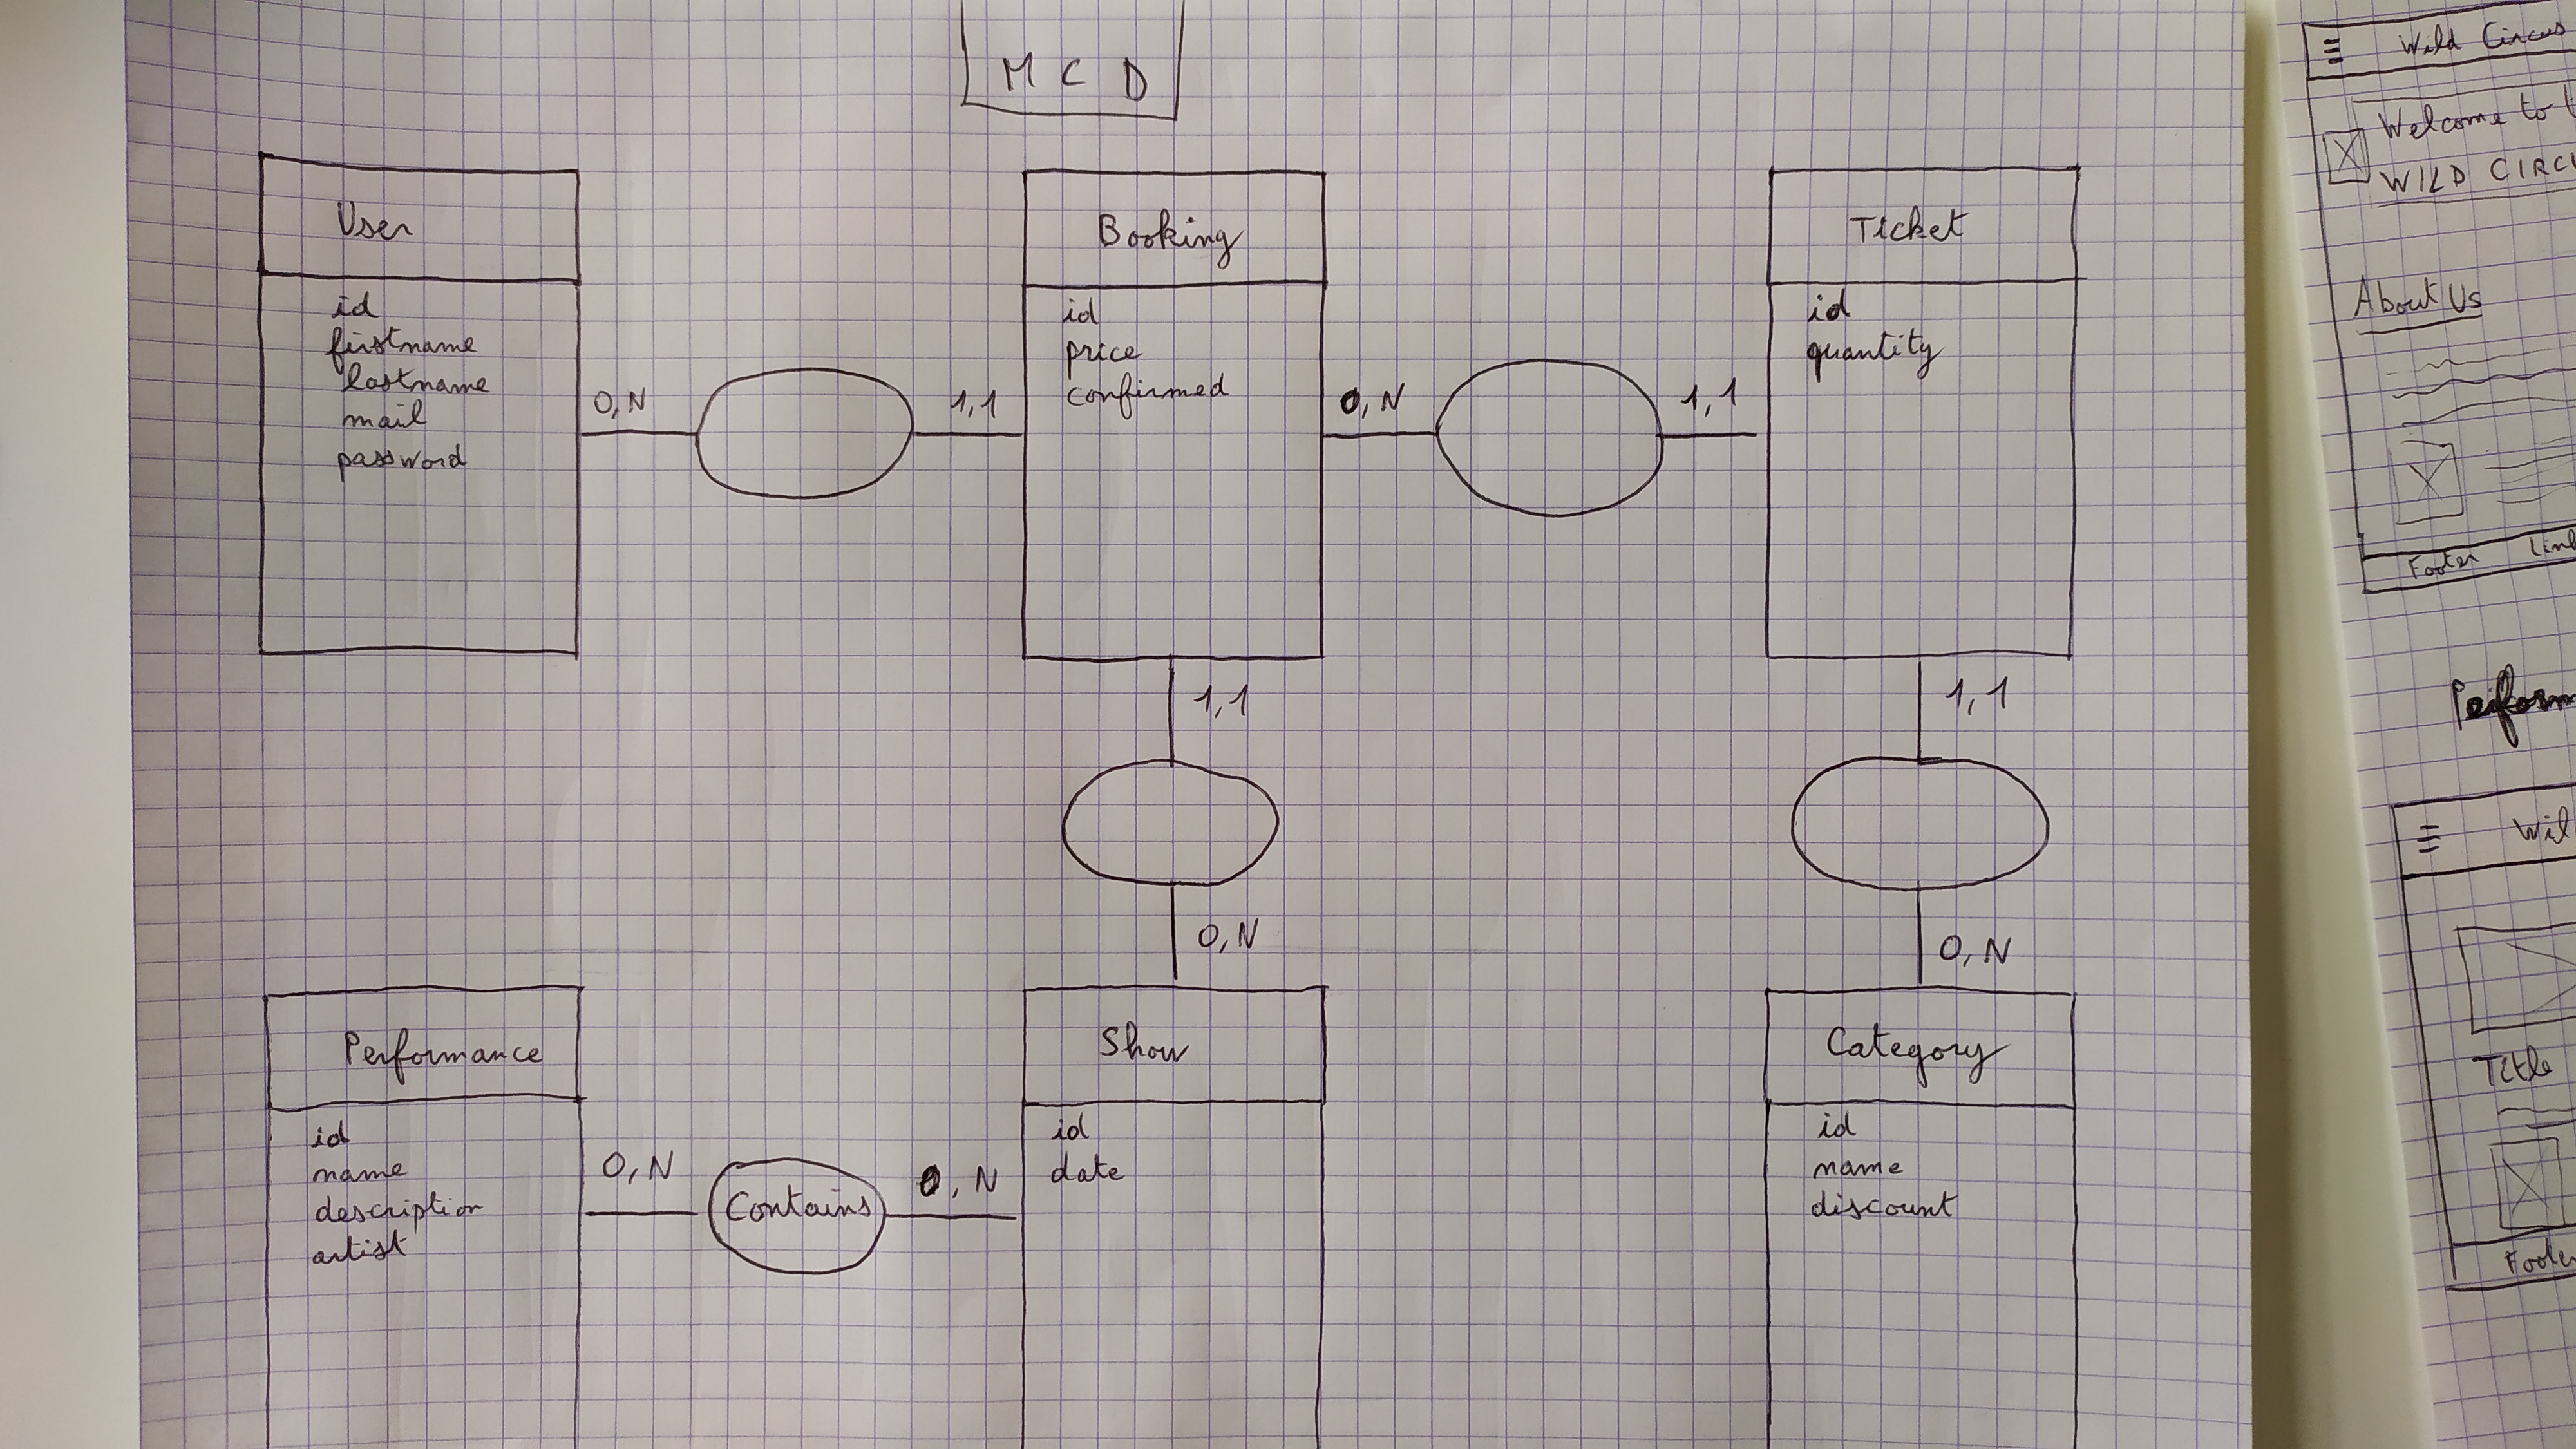 M C D
User
id
firstname
lastname
mail
password
0,N
1,1
Booking
id
price
confirmed
0,N
1,1
Ticket
id
quantity
1,1
0,N
1,1
0,N
Performance
id
name
description
artist
0,N
Contains
0,N
Show
id
date
Category
id
name
discount
Wild Circus
Welcome to
WILD
About Us
Footer
Title